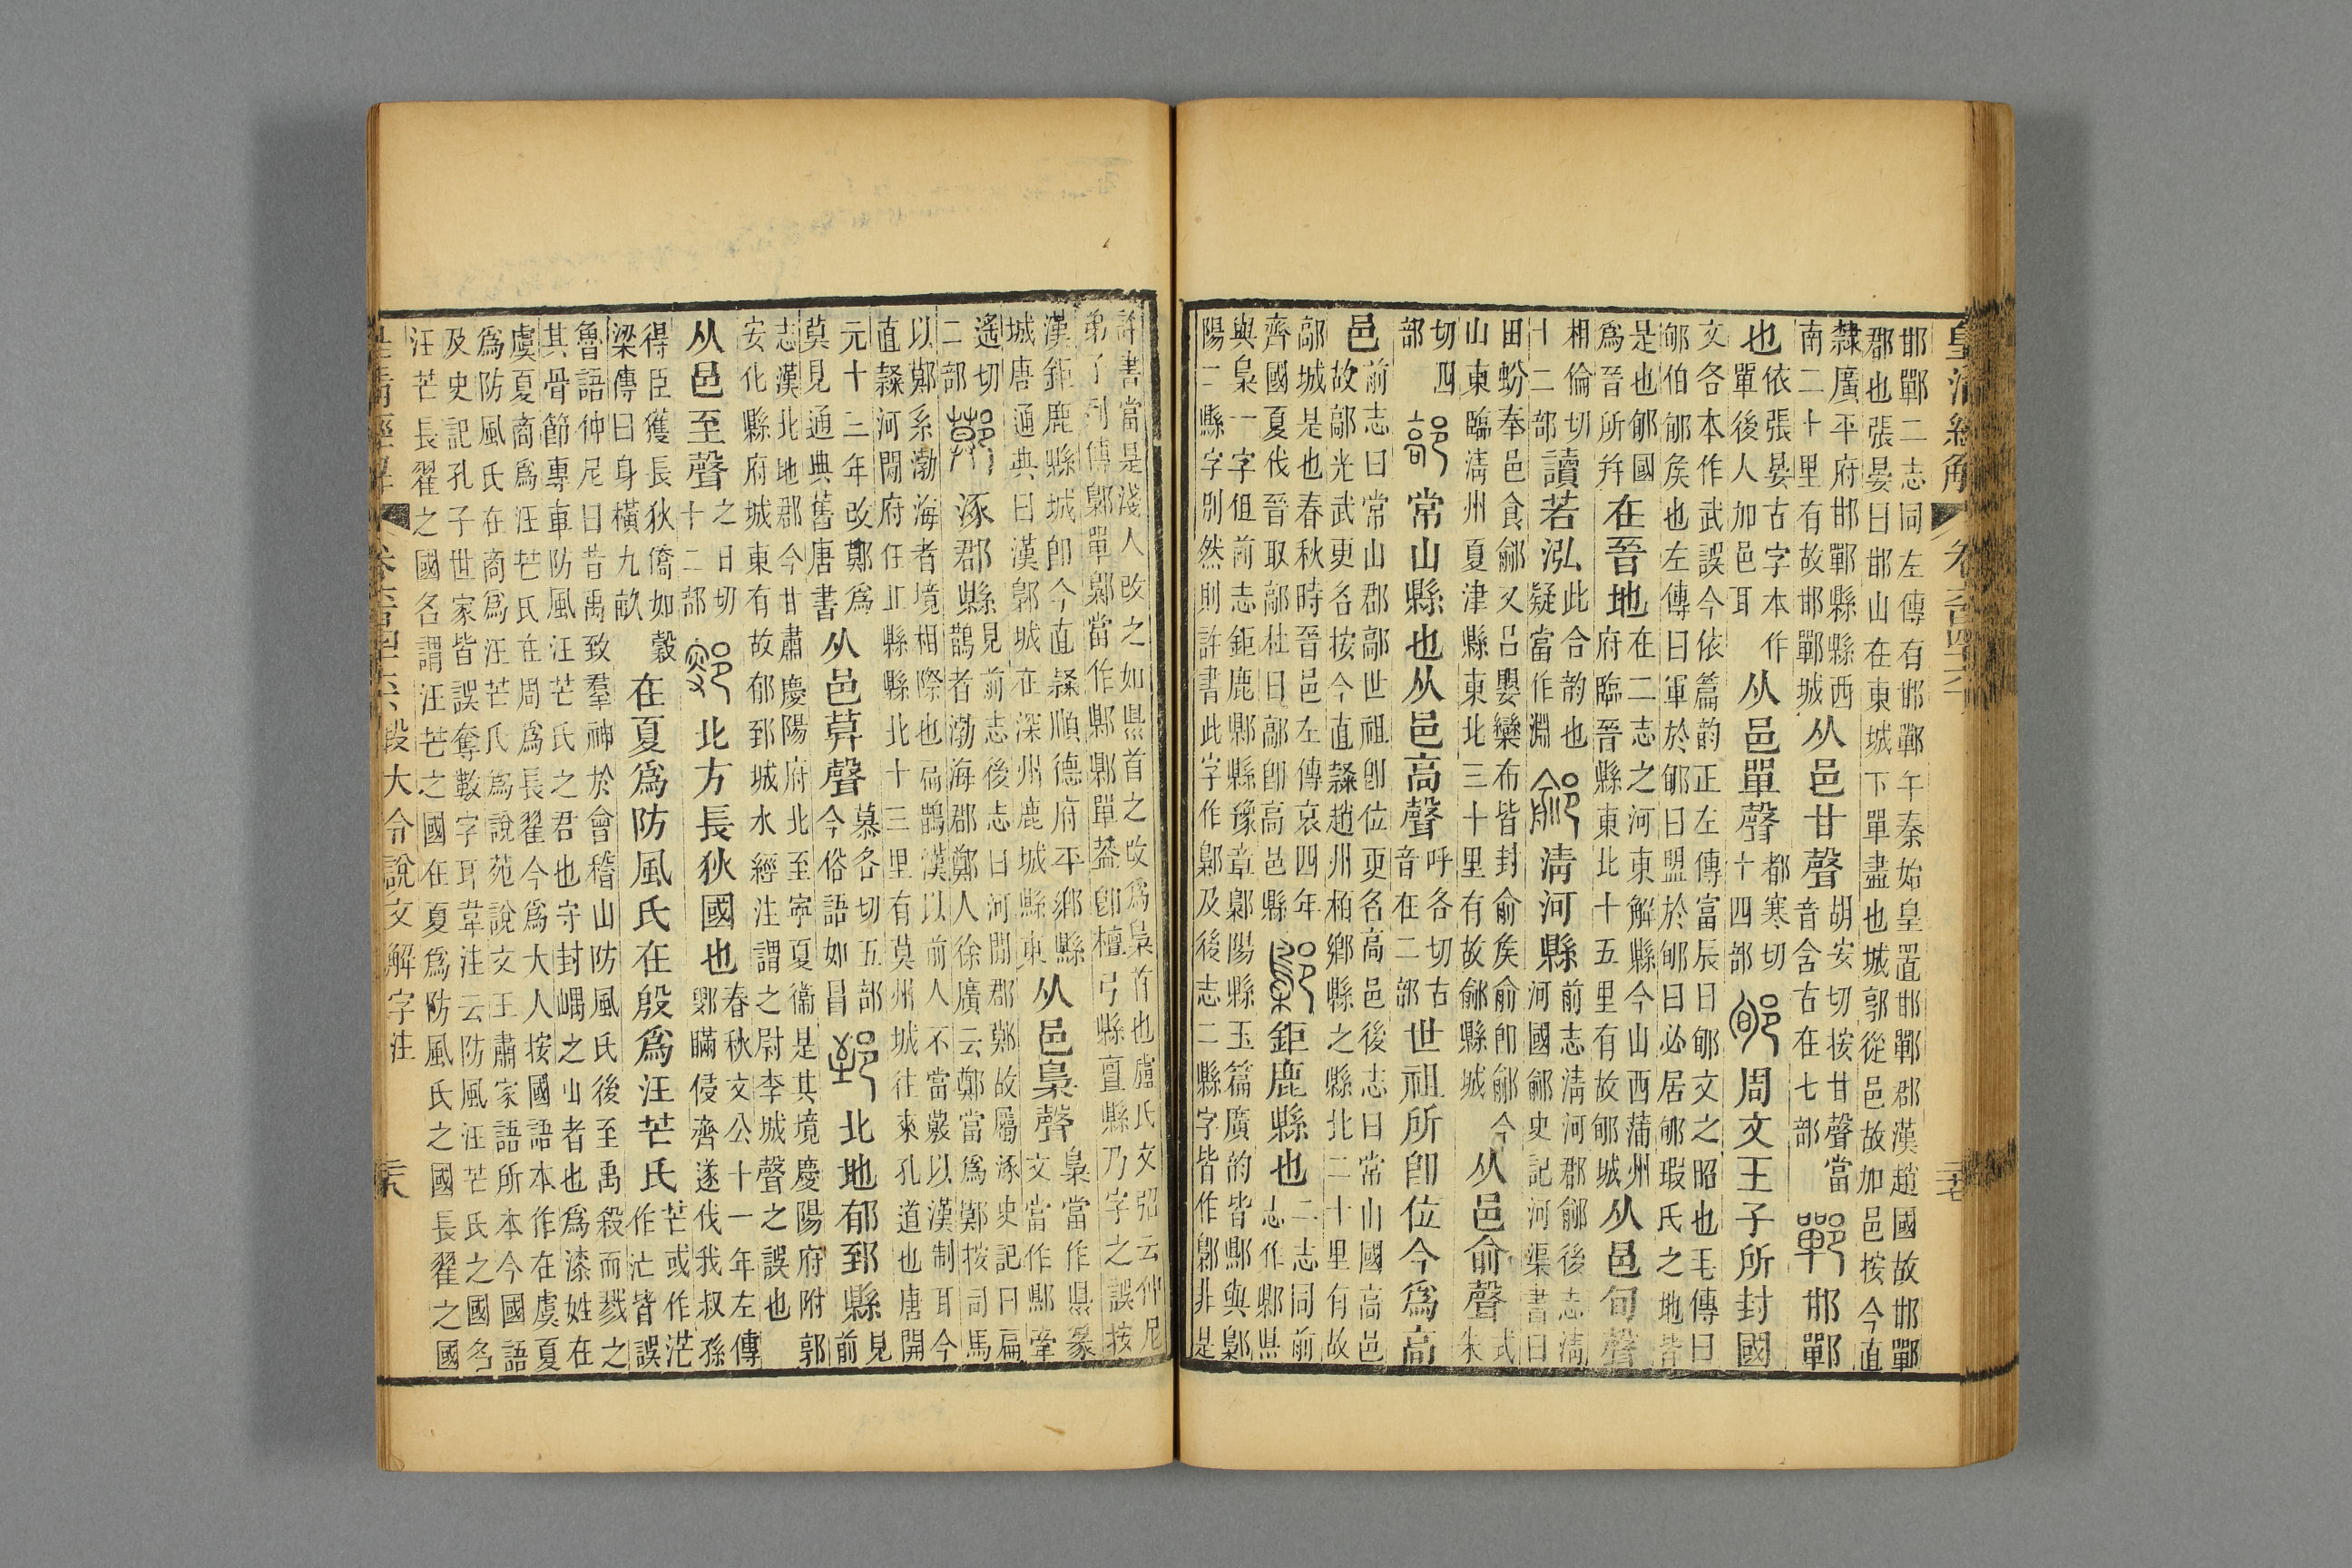 皇清經解 卷六百四十六 
邯鄲二志同左傳有邯鄲午秦始皇置邯鄲郡漢趙國故邯鄲
郡也張晏曰邯山在東城下單盡也城郭從邑故加邑按今直
隸廣平府邯鄲縣縣西南二十里有故邯鄲城从邑甘聲胡安切按甘聲當音含古在七部鄲邯鄲
也依張晏古字本作單後人加邑耳从邑單聲都寒切十四部郇周文王子所封國
文各本作武誤今依篇韵正左傳富辰曰郇文之昭也毛傳曰
郇伯郇矦也左傳曰軍於郇曰盟於郇曰必居郇瑕氏之地皆
是也郇國爲晉所幷在晉地在二志之河東解縣今山西蒲州府臨晉縣東北十五里有故郇城从邑旬聲
相倫切十二部讀若泓此合韵也疑當作淵鄃清河縣前志清河郡鄃後志清河國鄃史記河渠書曰
田蚡奉邑食鄃又呂嬰欒布皆封俞矦俞卽鄃今山東臨清州夏津縣東北三十里有故鄃縣城从邑俞聲式朱
切四部鄗常山縣也从邑高聲呼各切古音在二部世祖所卽位今爲高
邑前志曰常山郡鄗世祖卽位更名高邑後志曰常山國高邑故鄗光武更名按今直隸趙州柏鄉縣之縣北二十里有故
鄗城是也春秋時晉邑左傳哀四年齊國夏伐晉取鄗杜曰鄗卽高邑縣鄡鉅鹿縣也二志同前志作鄡県
與梟一字但前志鉅鹿鄡縣豫章鄡陽縣玉篇廣韵皆鄡與鄡
陽二縣字別然則許書此字作鄡及後志二縣字皆作鄡非是
許書當是淺人改之如県首之改爲梟首也盧氏文弨云仲尼
弟子列傳鄡單鄡當作鄡鄡單葢卽檀弓縣亶縣乃字之誤按
漢鉅鹿縣城卽今直隸順德府平鄉縣城唐通典曰漢鄡城在深州鹿城縣東从邑梟聲梟當作県篆文當作鄡牽
遙切二部鄚涿郡縣見前志後志曰河閒郡鄚故屬涿史記曰扁鵲者渤海郡鄭人徐廣云鄭當爲鄚按司馬
以鄭系渤海者境相際也扁鵲漢以前人不當嚴以漢制耳今
直隸河閒府任丘縣縣北十三里有莫州城往來孔道也唐開
元十三年改鄚爲莫見通典舊唐書从邑莫聲慕各切五部今俗語如昌郅北地郁郅縣見前
志漢北地郡今甘肅慶陽府北至寧夏衞是其境慶陽府附郭
安化縣府城東有故郁郅城水經注謂之尉李城聲之誤也
从邑至聲之日切十二部鄋北方長狄國也春秋文公十一年左傳鄋瞞侵齊遂伐我叔孫
得臣獲長狄僑如穀梁傳曰身橫九畝在夏爲防風氏在殷爲汪芒氏芒或作茫作汒皆誤
魯語仲尼曰昔禹致羣神於會稽山防風氏後至禹殺而戮之
其骨節專車防風汪芒氏之君也守封嵎之山者也爲漆姓在
虞夏商爲汪芒氏在周爲長翟今爲大人按國語本作在虞夏
爲防風氏在商爲汪芒氏爲說苑說文王肅家語所本今國語
及史記孔子世家皆誤奪數字耳韋注云防風汪芒氏之國名
汪芒長翟之國名謂汪芒之國在夏爲防風氏之國長翟之國
皇清經解 卷六百四十六 段大令說文解字注